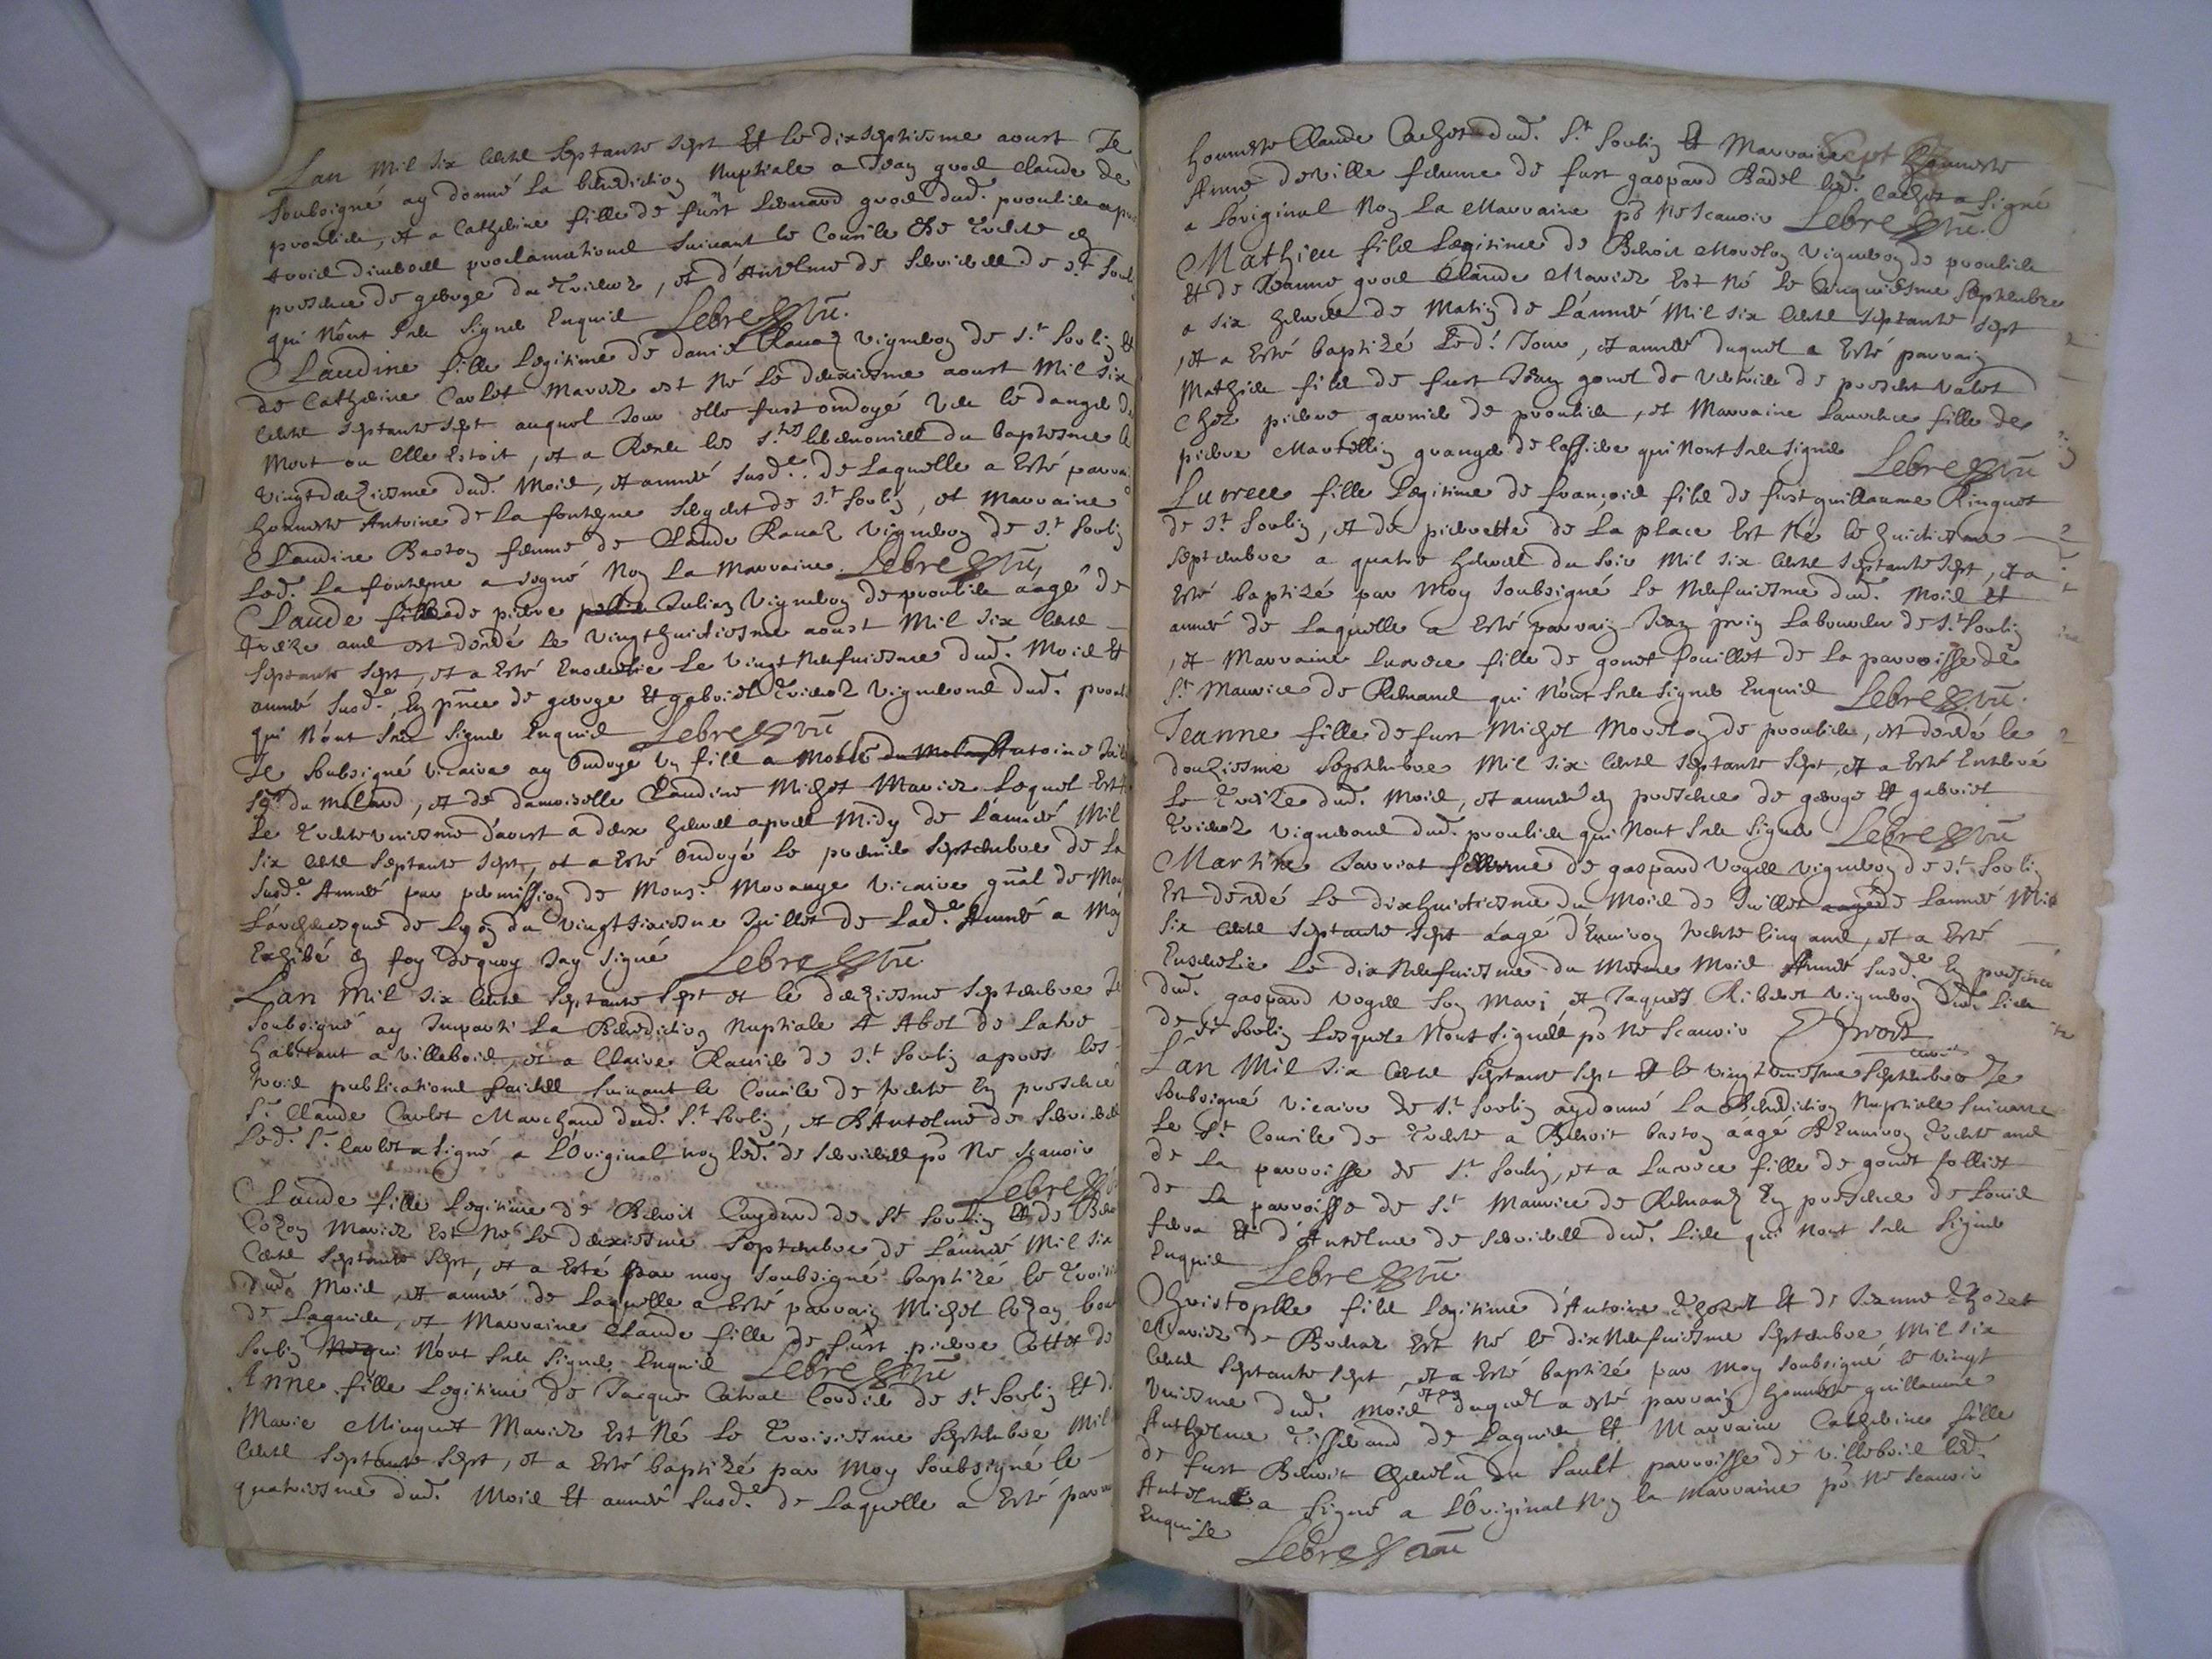 Lan mil six cents septante sept Et le dixseptiesme aoust Je
soubsigné ay donné la benediction Nuptiale a Jean gros Claude de
proulieu, et a Catherine fille de fust Leonard gros dud. proulieu apres
trois diverses proclamations suivant le Concile de Trente en
presence de george du Trieuz, et d'Antelme de Servieres de St Sorlin
qui n'ont sceu signé Enquis Lebre vic.
Claudine fille Legitime de daniel Ravaz vigneron de St Sorlin Et
de Catherine Carlot Mariez est Né Le deuxiesme aoust Mil six
cents septante sept auquel Jour elle fust ondoyé veu le danger de
Mort ou elle Estoit, et a Receu les Stes ceremonies du baptesme le
vingtdeuxiesme dud. Mois, et année susd.e de Laquelle a Esté parrain
honneste Antoine de La fontayne sergent de St Sorlin, et Marraine
Claudine Baston femme de Claude Ravaz vigneron de St Sorlin
Led. La fontayne a signé Non la Marraine. Lebre vic
Claude fille de pierre Julian vigneron de proulieu aagé de
treize ans est decedé le vingthuictiesme aoust Mil six cents
septante sept, et a Esté Ensevelie Le vingt neufuiesme dud. Mois Et
année susd.e, En pnce de george Et gabriel Trieuz vignerons dud. proulieu
qui N'ont sceu signé Enquis Lebre vic
Je soubsigné vicaire ay Ondoyé un fils a Antoine
Sgr du Molard, et de damoiselle Claudine Michet Mariez Lequel Est né
Le Trenteuniesme d'aoust a deux heures apres Midy de L'année Mil
six cents septante sept, et a Esté Ondoyé le premier septembre de la
susd.e Année par permission de Monsr Morange vicaire gnal de Mons
L'archevesque de Lyon du vingt sixiesme Juillet de Lad.e Année a Moy
Exhibé en foy dequoy Jay signé Lebre vic.
Lan Mil six cents septante sept et le deuxiesme septembre Je
soubsigné ay Imparti La Benediction Nuptiale A Abel de Latre
habitant a villebois, et a Claire Ravier de St Sorlin apres les
trois publications faictes suivant le Concile de trente En presence
Sr Claude Carlot Marchand dud. St Sorlin, et d'Antelme de Servieres
Led. Sr Carlot a signé a L'Original non led. de Servieres po Ne scavoir
Lebre vic
Claude fille Legitime de Benoit Cuydard de St Sorlin Et de
Cozon Mariez Est Né Le deuxiesme septembre de L'année Mil six
Cents septante sept, et a Esté par moy soubsigné baptizé le troisi
dud. Mois, et année de Laquelle a Esté parrain Michel Cozon
de Lagnieu, et Marraine Claude fille de fust pierre Cottet de
Sorlin qui N'ont sceu signé Enquis Lebre vic
Anne fille Legitime de Jacque Caival Cordier de St Sorlin Et de
Marie Minguet Mariez Est Né Le Troisiesme septembre Mil
cents septante sept, et a Esté baptizé par Moy soubsigné le
quatriesme dud. Mois Et année susd.e de Laquelle a Esté parrain
honneste Claude Cachet dud. St Sorlin Et Marraine honneste
Anne deville femme de fust gaspard Badel led. Cachet a signé
a Loriginal Non La Marraine po Ne scavoir Lebre vic.
Mathieu fils Legitime de Benoit Morelon vigneron de proulieu
Et de Jeanne gros Claude Mariez Est Né Le Cinquiesme septembre
a six heures de Matin de L'année Mil six cents septante sept
, et a Esté baptizé Led. Jour, et année duquel a Esté parrain
Mathieu fils de fust Jean gonet de present valet
Chez pierre garnier de proulieu, et Marraine Laurence fille de
pierre Martellin granger de qui Nont sceu signé Lebre vic
Lucrece fille Legitime de françois fils de fust guillaume Ringuet
de St Sorlin, et de pierrette de La place Est Né le huictiesme
septembre a quatre heures du soir Mil six cents septante sept, et a
Esté baptizé par Moy soubsigné le Neufuiesme dud. Mois Et
année de Laquelle a Esté parrain Jean prin Laboureur de St Sorlin
, et Marraine Lucrece fille de gonet fouillet de La parroisse de
St Maurice de Remans qui N'ont sceu signé Enquis Lebre vic.
Jeanne fille de fust Michel Morelon de proulieu, est decedé le
douziesme septembre Mil six cents septante sept, et a Esté Enterré
Le treize dud. Mois, et année en presence de george Et gabriel
Trieuz vignerons dud. proulieu qui Nont sceu signé Lebre vic
Martine Janviat femme de gaspard vogell vigneron de St Sorlin
Est decedé Le dixhuictiesme du Mois de Juillet de L'année Mil
six cents septante sept aagé d'Environ trente cinq ans, et a Esté
Ensevelie Le dix Neufuiesme du Mesme Mois Année susd.e En presence
dud. gaspard vogell son Mari et Jaques Ribelet vigneron dud. lieu
de St Sorlin Lesquels Nont signés po Ne scavoir
Lan Mil six cents septante sept Et le vingtuniesme septembre Je
soubsigné vicaire de St Sorlin ay donné La Benediction Nuptiale suivant
Le St Concile de Trente a Benoit baston aagé d'Environ Trente ans
de La parroisse de St Sorlin, et a Lucrece fille de gonet folliet
de La parroisse de St Maurice de Remans En presence de Louis
ferra Et d'Antelme de Servieres dud. Lieu qui Nont sceu signé
Enquis Lebre vic
Christophle fils Legitime d'Antoine Thozet Et de Jeanne Thozet
Mariez de Est Né le dix Neufuiesme septembre Mil six
cents septante sept, et a Esté baptizé par Moy soubsigné le vingt
uniesme dud. Mois et an duquel a esté parrain honneste guillaume
Anthelme Tisserand de Lagnieu Et Marraine Catherine fille
de fust Benoit du Sault parroisse de villebois led.
Antelme a signé a L'Original Non la Marraine po Ne scavoir
Enquise Lebre vic